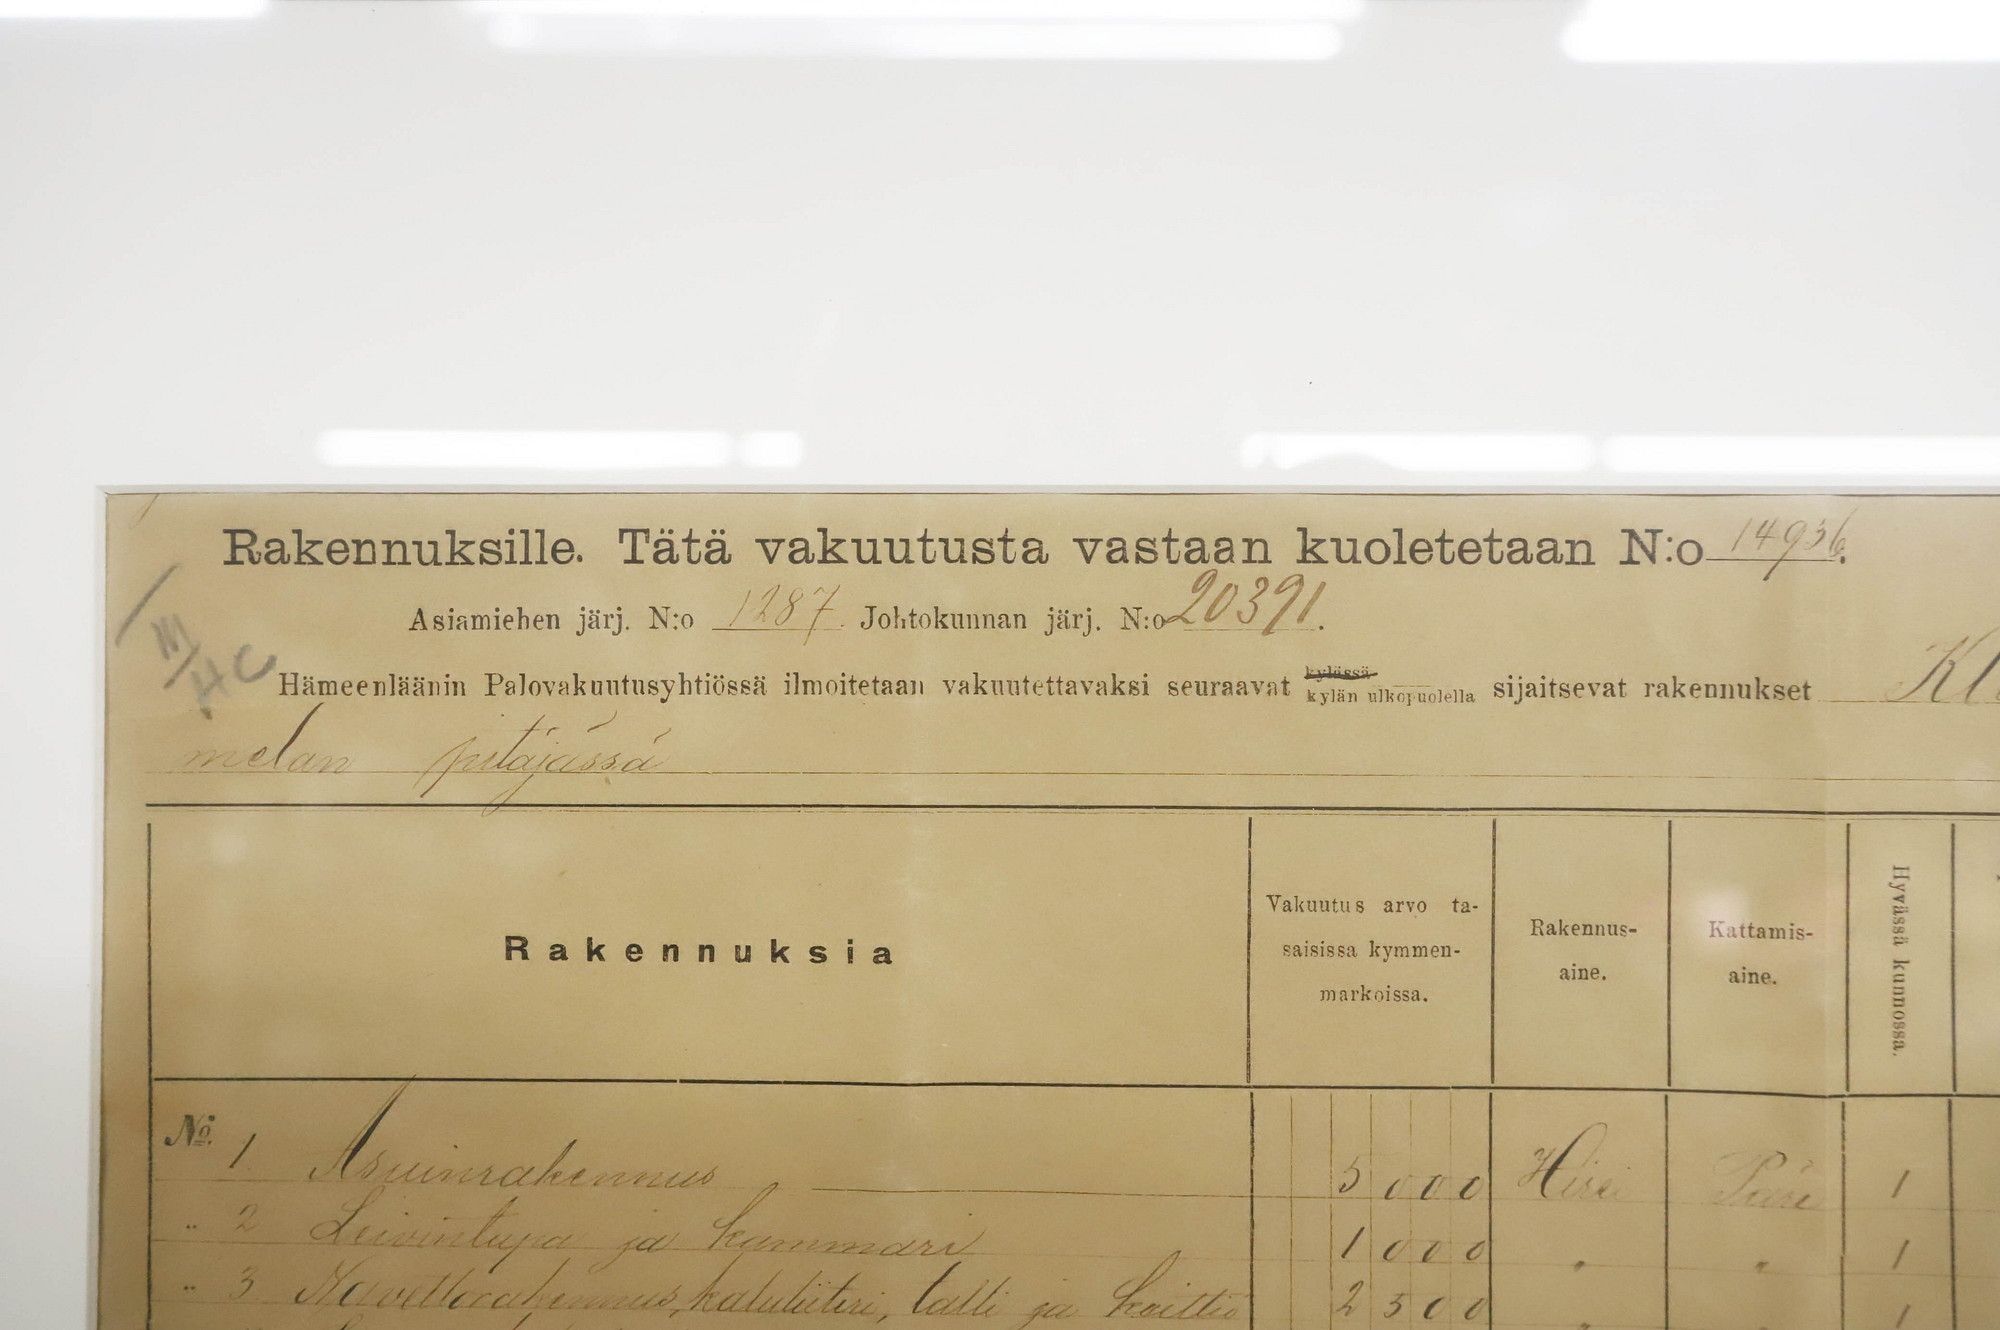 Rakennuksille. Tätä vakuutusta vastaan kuoletetaan N:o 14936.
Asiamiehen järj. N:o 1287. Johtokunnan järj. N:o 20391.
III/HC
Hämeenläänin Palovakuutusyhtiössä ilmoitetaan vakuutettavaksi seuraavat kylässä kylän ulkopuolella sijaitsevat rakennukset Kl
melan pitäjässä
Rakennuksia
Vakuutus arvo ta-
saisissa kymmen-
markoissa.
Rakennus-
aine.
Kattamis-
aine.
Hyvässä kunnossa.
No. 1 Asuinrakennus 5000 Hirsi Päre 1
" 2 Leivintupa ja kammari 1000 " " 1
" 3 Navettorakennus, kaluliiteri, talli ja keittiö 2500 " " 1